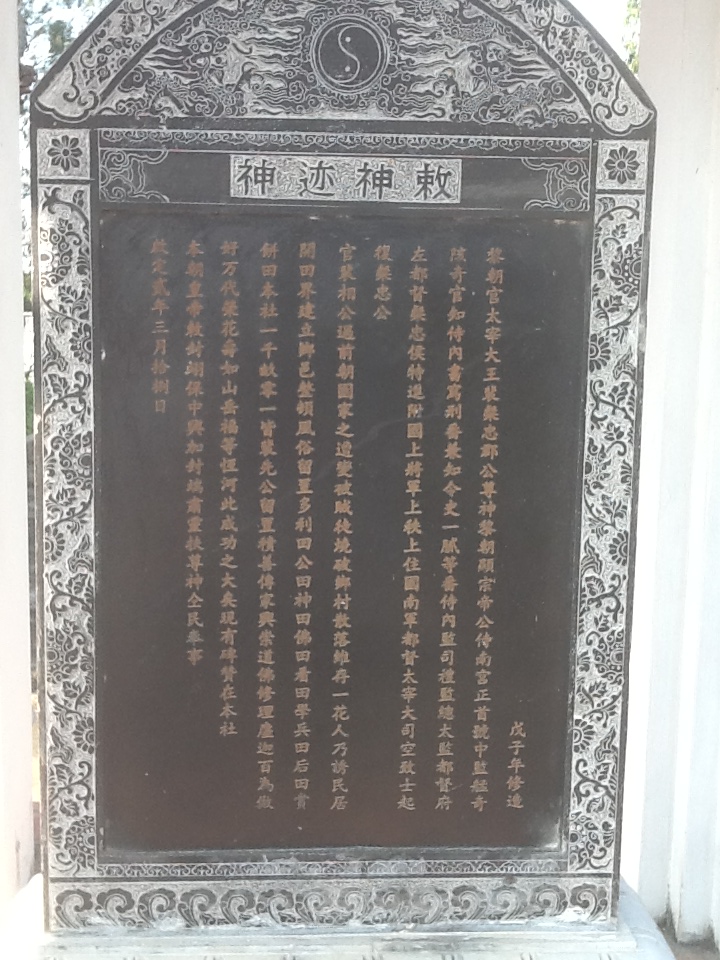 敕神迹神
戊子年修造
黎朝官太宰大王裴忠郡公尊神黎朝顯宗帝公侍南宮正首號中監艋奇
隊奇官知侍內書寫刑番兼知令史一膩等番侍內監司禮監總太監都督府
左都督忠侯特進附國上將軍上秩上柱國南軍都督太宰大司空致士起
復忠公
官裴相公遇前朝國家之遭變被賊徒燒破鄉村散落維存一花人乃誘民居
開田界建立鄉邑整頓風俗留置多利田公田神田佛田看田學兵田后田賞
餅田本社一千畝零一皆裴先公留置積善傳家興崇道佛修理盧迦百為徽
好万代榮花壽如山岳福等恒河此成功之大矣現有碑贊在本社
本朝皇帝敕封翊保中興加封端肅靈扶尊神仝民奉事
啟定貳年三月拾捌日